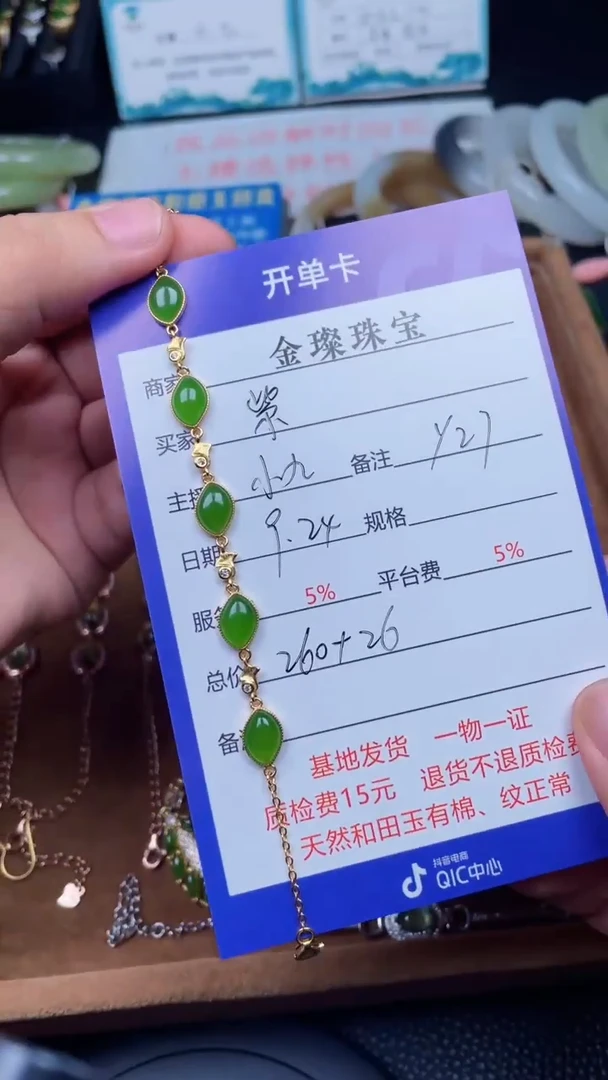 开单卡
商家 金璨珠宝
买家 紫
主播 小九 备注 Y27
日期 9.24 规格
服务 5% 平台费 5%
总价 260+26
备注
基地发货 一物一证
质检费15元 退货不退质检费
天然和田玉有棉、纹正常
抖音电商
QIC中心